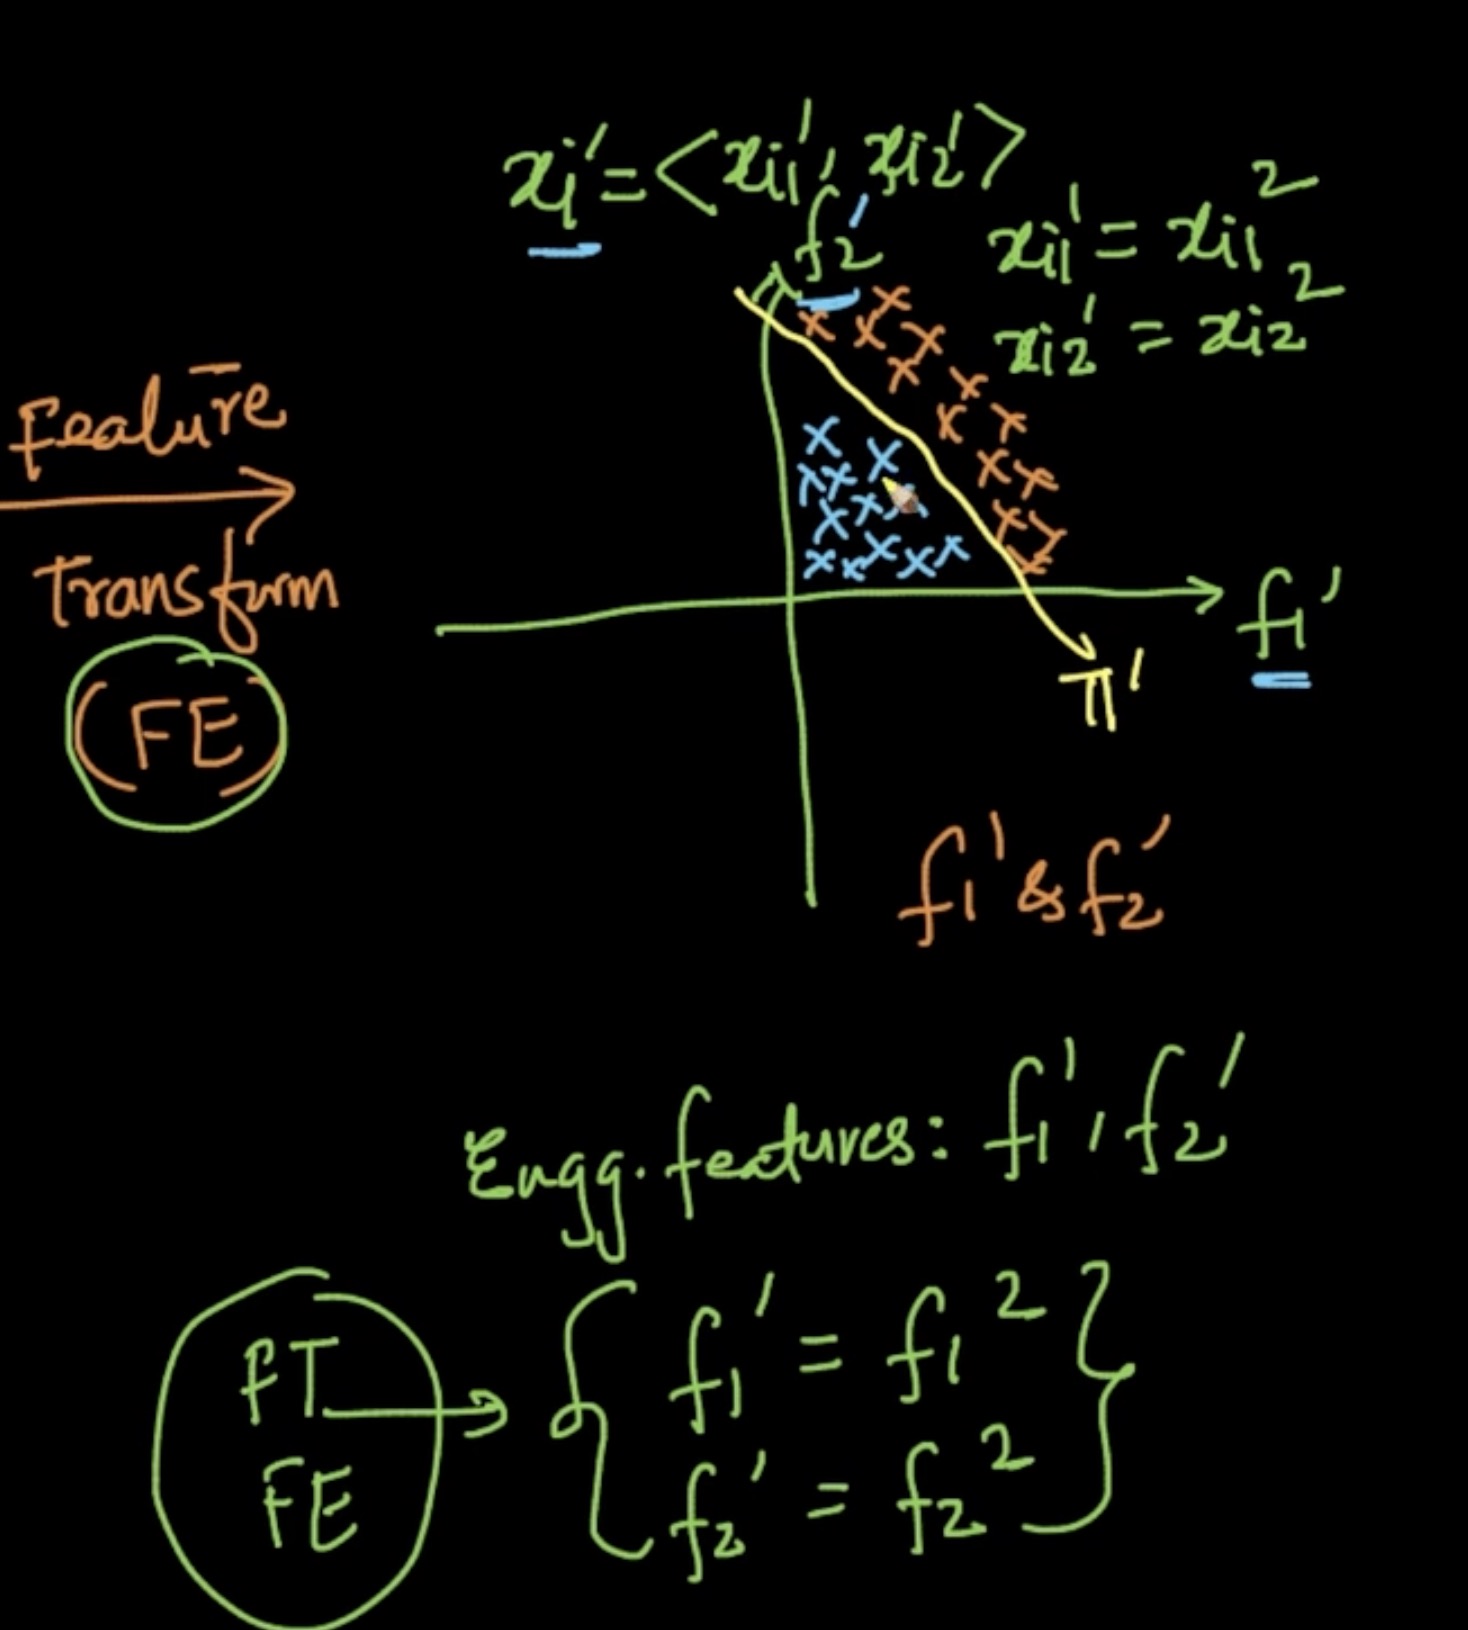 xi' = <xi1', xi2'>
xi1' = xi1²
xi2' = xi2²
f2'
Feature
Transform
(FE)
f1'
π'
f1' & f2'
Engg. features: f1', f2'
FT
FE
{ f1' = f1² }
f2' = f2²